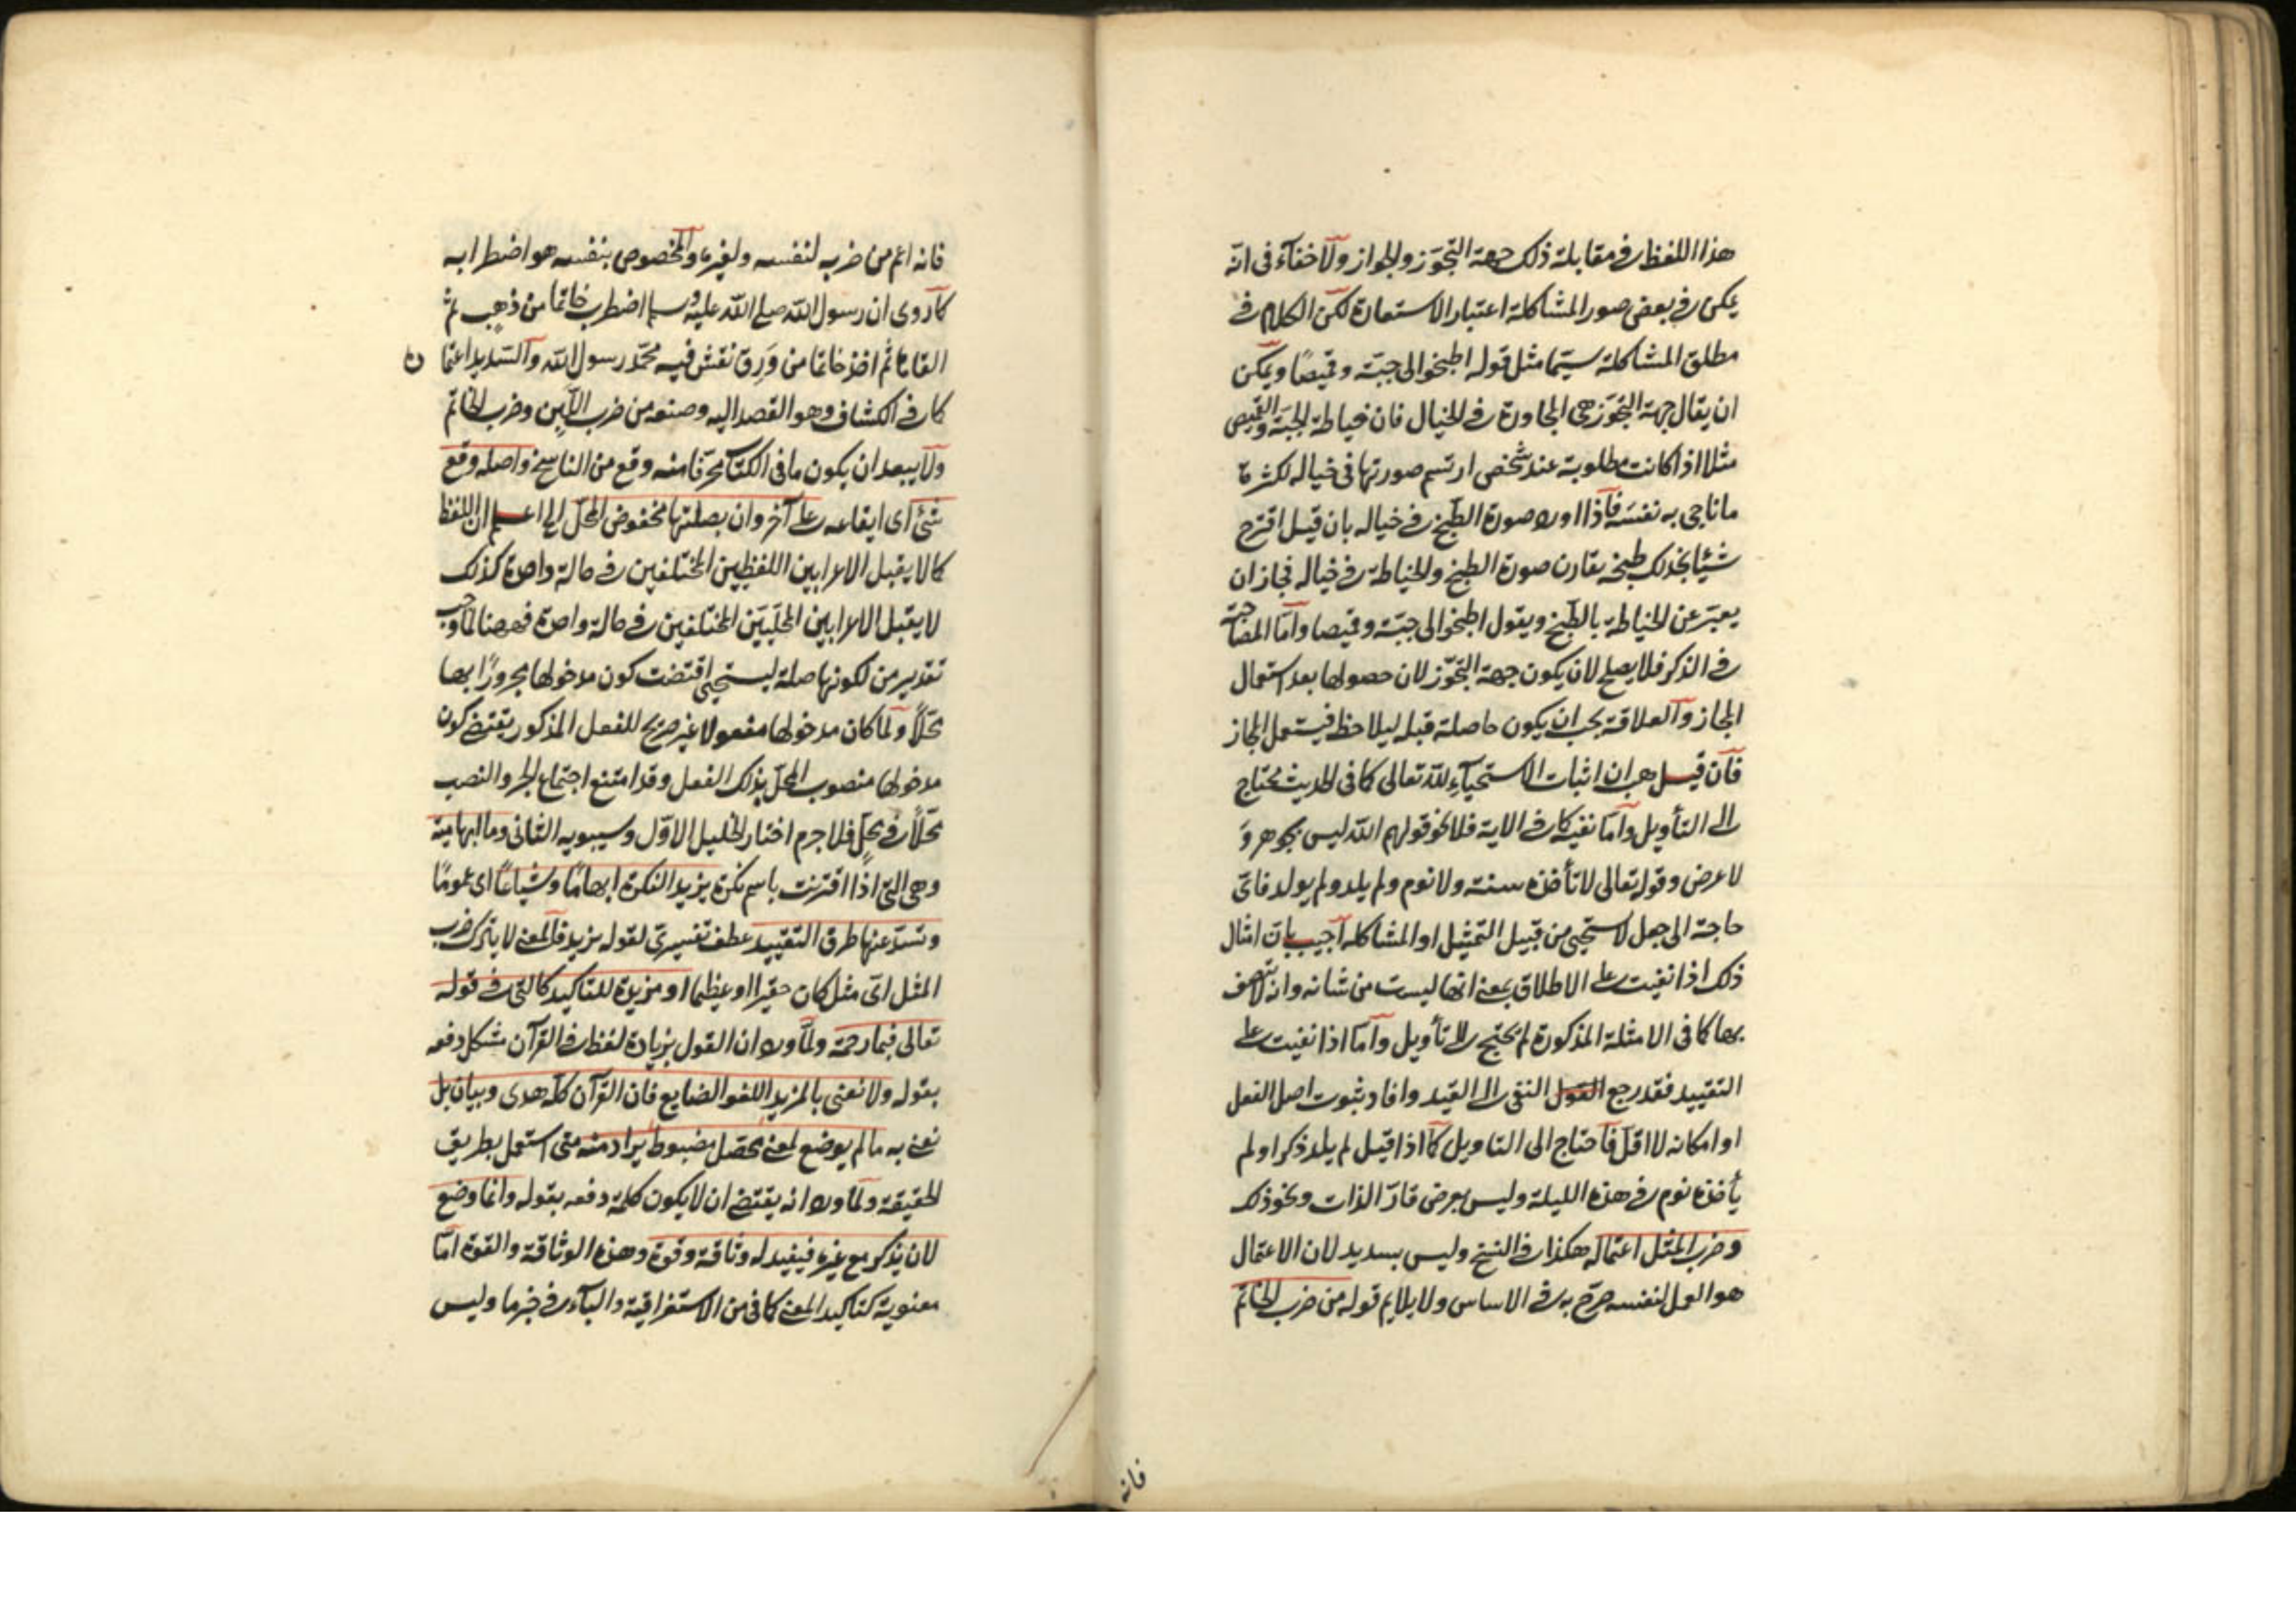 هذا اللفظ في مقابلة ذلك جهة التجوّز والجواز ولا خفآء في انّه
يمكن في بعض صور المشاكلة اعتبار الاستعارة لكن الكلام في
مطلق المشاكلة سيّما مثل قوله اطبخوا لى جبّة وقميصًا ويمكن
ان يقال جهة التجوّز هى المجاورة في الخيال فان خياطة الجبّة والقميص
مثلا اذا كانت مطلوبة عند شخص ارتسم صورتها فى خياله لكثرة
ما ناجى به نفسه فاذا اورد صورة الطبخ في خياله بان قيل اقترح
شيئا نجد لك طبخه يقارن صورة الطبخ والخياطة في خياله فجاز ان
يعبّر عن الخياطة بالطبخ ويقول اطبخوا لى جبّة وقميصا وامّا المصاحبة
في الذكر فلا يصلح لان يكون جهة التجوّز لان حصولها بعد استعمال
المجاز والعلاقة يجب ان يكون حاصلة قبله ليلاحظ فيستعمل المجاز
فان قيل هب ان اثبات الاستحيآء لله تعالى كما فى الحديث يحتاج
الى التأويل وامّا نفيه كما في الاية فلا نحو قولهم الله ليس بجوهر و
لا عرض وقوله تعالى لا تأخذه سنة ولا نوم ولم يلد ولم يولد فاىّ
حاجة الى جعل لا يستحيى من قبيل التمثيل او المشاكلة اجيب بانّ امثال
ذلك اذا نفيت على الاطلاق بمعنى انها ليست من شانه وانه لا يتصف
بها كما فى الامثلة المذكورة لم يحتج الى تأويل وامّا اذا نفيت على
التقييد فقد رجع النفى الى القيد وافاد ثبوت اصل الفعل
او امكانه لا اقلّ فاحتاج الى التاويل كما اذا قيل لم يلد ذكرا ولم
يأخذه نوم في هذه الليلة وليس بعرض قارّ الذات ونحو ذلك
وضرب المثل اعتماله هكذا في النسخ وليس بسديد لان الاعتمال
هو العمل لنفسه صرّح به في الاساس ولا يلايم قوله من ضرب الخاتم
فانه
فانه اعم من ضربه لنفسه ولغيره والمخصوص بنفسه هو اضطرابه
كما روى ان رسول الله صلى الله عليه وسلم اضطرب خاتما من ذهب ثم
القاها ثم اخذ خاتما من وَرِق نقش فيه محمّد رسول الله والسديد اعتما
كما في الكشاف وهو القصد اليه وصنعه من ضرب اللبن وضرب الخاتم
ولا يبعد ان يكون ما فى الكتاب محرّفا منه وقع من الناسخ واصله وقع
شئ اى ايقاعه على آخر وان بصلتها مخفوض المحلّ الخ اعلم ان اللفظ
كما لا يقبل الاعرابين اللفظيين المختلفين في حالة واحدة كذلك
لا يقبل الاعرابين المحلّيّين المختلفين في حالة واحدة فههنا لما وجب
تقدير من لكونها صلة ليستحيى اقتضت كون مدخولها مجرورًا بها
محلّاً ولما كان مدخولها مفعولا غير صريح للفعل المذكور يقتضى كون
مدخولها منصوب المحلّ بذلك الفعل وقد امتنع اجتماع الجر والنصب
محلّاً في محلّ فلا جرم اختار الخليل الاوّل وسيبويه الثانى وما ابهامية
وهى التى اذا اقترنت باسم نكرة يزيد النكرة ابهامًا وشياعًا اى عمومًا
وتسدّ عنها طرق التقييد عطف تفسيرىّ لقوله يزيد فالمعنى لا يترك ضرب
المثل اىّ مثل كان حقيرا او عظيما او مزيدة للتاكيد كالتى في قوله
تعالى فبما رحمة ولمّا ورد ان القول بزيادة لفظ في القرآن مشكل دفعه
بقوله ولا نعنى بالمزيد اللغو الضايع فان القرآن كلّه هدى وبيان بل
نعنى به ما لم يوضع لمعنى محصّل مضبوط يراد منه متى استعمل بطريق
الحقيقة ولمّا ورد انه يقتضى ان لا يكون كلمة دفعه بقوله وانما وضع
لان يذكر مع غيره فيفيد له وثاقة وقوة وهذه الوثاقة والقوة امّا
معنوية كتاكيد المعنى كما فى من الاستغراقية والبآء في خبر ما وليس